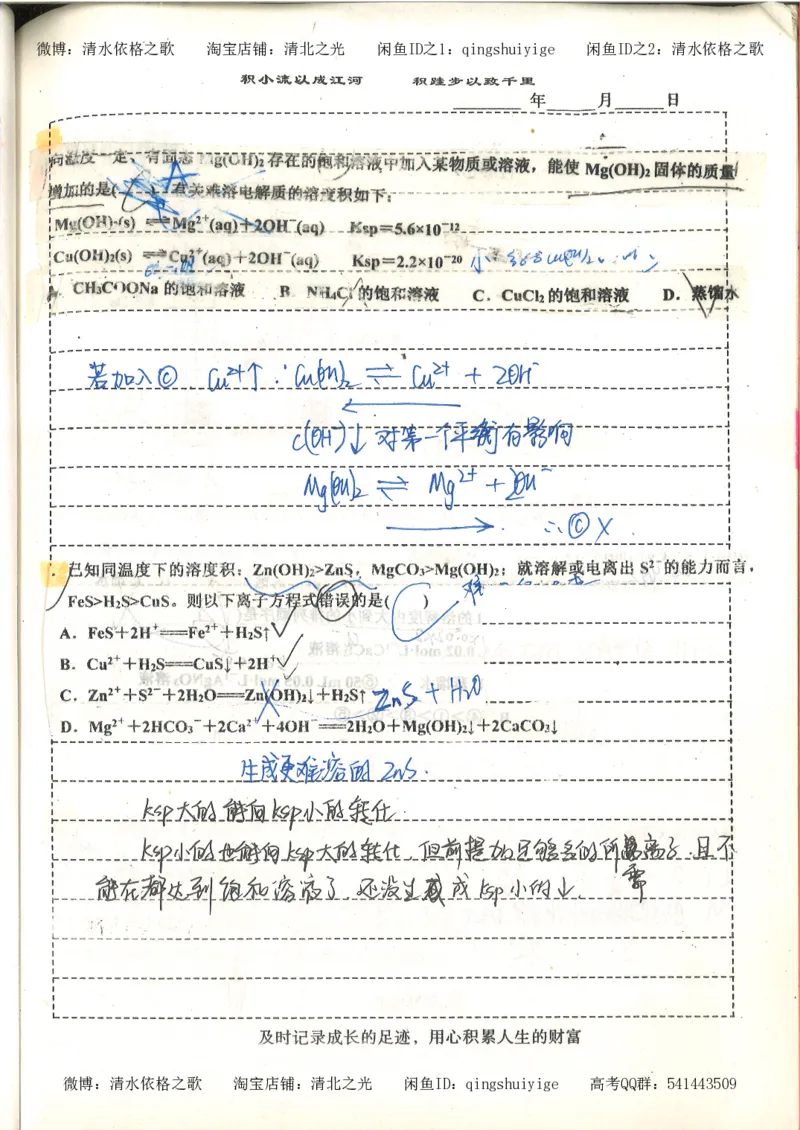 微博：清水依格之歌 淘宝店铺：清北之光 闲鱼ID之1：qingshuiyige 闲鱼ID之2：清水依格之歌
积小流以成江河 积跬步以致千里
年 月 日
向温度一定、有固态Mg(OH)₂存在的饱和溶液中加入某物质或溶液，能使 Mg(OH)₂固体的质量
增加的是( A )。有关难溶电解质的溶度积如下：
Mg(OH)₂(s) ⇌ Mg²⁺(aq)＋2OH⁻(aq) Ksp＝5.6×10⁻¹²
Cu(OH)₂(s) ⇌ Cu²⁺(aq)＋2OH⁻(aq) Ksp＝2.2×10⁻²⁰ 小
CH₃COONa 的饱和溶液 B．NH₄Cl 的饱和溶液 C．CuCl₂ 的饱和溶液 D．蒸馏水
若加入© Cu²⁺↑ ∵Cu(OH)₂ ⇌ Cu²⁺ + 2OH⁻
←
c(OH⁻)↓ 对第一个平衡有影响
Mg(OH)₂ ⇌ Mg²⁺ + 2OH⁻
→ ∴© X
．已知同温度下的溶度积：Zn(OH)₂>ZnS，MgCO₃>Mg(OH)₂；就溶解或电离出 S²⁻的能力而言，
FeS>H₂S>CuS。则以下离子方程式错误的是( C ) 难
A．FeS＋2H⁺══Fe²⁺＋H₂S↑ ✓
B．Cu²⁺＋H₂S══CuS↓＋2H⁺ ✓
C．Zn²⁺＋S²⁻＋2H₂O══Zn(OH)₂↓＋H₂S↑ ZnS + H₂O
D．Mg²⁺＋2HCO₃⁻＋2Ca²⁺＋4OH⁻══2H₂O＋Mg(OH)₂↓＋2CaCO₃↓
生成更难溶的 ZnS.
ksp大的能向ksp小的转化.
ksp小的也能向ksp大的转化，但前提加足够多的所需离子，且不
能在都达到饱和溶液了，还没生成ksp小的
及时记录成长的足迹，用心积累人生的财富
微博：清水依格之歌 淘宝店铺：清北之光 闲鱼ID：qingshuiyige 高考QQ群：541443509